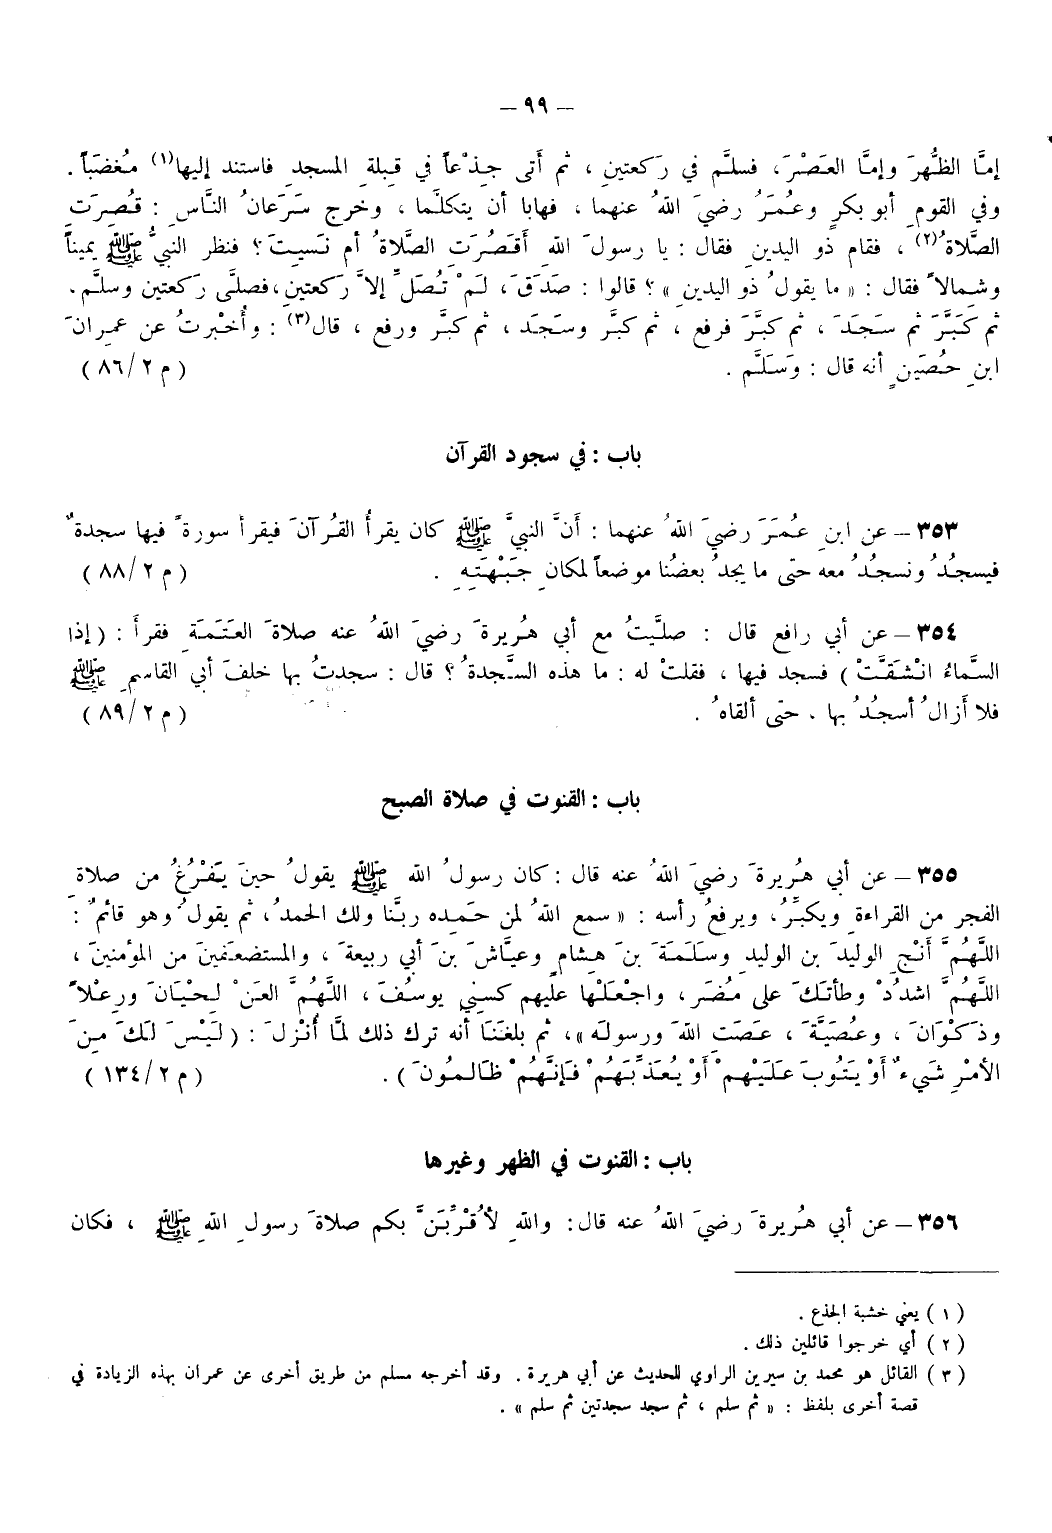 — ٩٩ —
إمَّا الظُّهرَ وإمَّا العَصْرَ، فسلَّم في رَكعتينِ ، ثم أَتى جِذْعاً في قِبلةِ المسجدِ فاستند إليها(١) مُغضَباً .
وفي القومِ أبو بكرٍ وعُمَرُ رضيَ اللهُ عنهما ، فهابا أن يتكلَّما ، وخرج سَرَعانُ النَّاسِ : قُصِرَتِ
الصَّلاةُ(٢) ، فقام ذو اليدينِ فقال : يا رسولَ اللهِ أَقَصُرَتِ الصَّلاةُ أم نَسيتَ ؟ فنظر النبيُّ ﷺ يميناً
وشمالاً فقال : « ما يقولُ ذو اليدين » ؟ قالوا : صَدَقَ ، لَمْ تُصَلِّ إلاَّ رَكعتينِ، فصلَّى رَكعتين وسلَّم .
ثم كَبَّرَ ثم سَجَدَ ، ثم كبَّرَ فرفع ، ثم كبَّر وسَجَد ، ثم كبَّر ورفع ، قال(٣) : وأُخْبرتُ عن عمرانَ
ابنِ حُصَينٍ أنه قال : وَسَلَّم . ( م ٢/٨٦ )
باب : في سجود القرآن
٣٥٣ — عن ابنِ عُمَرَ رضيَ اللهُ عنهما : أَنَّ النبيَّ ﷺ كان يقرأُ القُرآنَ فيقرأ سورةً فيها سجدةٌ
فيسجُدُ ونسجُدُ معه حتى ما يجدُ بعضُنا موضعاً لمكانِ جَبْهَتِهِ . ( م ٢/٨٨ )
٣٥٤ — عن أبي رافع قال : صلَّيتُ مع أبي هُريرةَ رضيَ اللهُ عنه صلاةَ العَتَمَةِ فقرأ : ( إذا
السَّماءُ انْشَقَّتْ ) فسجد فيها ، فقلت له : ما هذه السَّجدةُ ؟ قال : سجدتُ بها خلفَ أبي القاسمِ ﷺ
فلا أَزالُ أسجُدُ بها ، حتى ألقاهُ . ( م ٢/٨٩ )
باب : القنوت في صلاة الصبح
٣٥٥ — عن أبي هُريرةَ رضيَ اللهُ عنه قال : كان رسولُ الله ﷺ يقولُ حينَ يَفْرُغُ من صلاةِ
الفجر من القراءةِ ويكبِّرُ، ويرفعُ رأسه : « سمع اللهُ لمن حَمِده ربَّنا ولك الحمدُ، ثم يقولُ وهو قائمٌ :
اللَّهُمَّ أَنْجِ الوليدَ بن الوليدِ وسَلَمَةَ بنَ هِشامٍ وعيَّاشَ بنَ أبي ربيعةَ ، والمستضعَفينَ من المؤمنينَ ،
اللَّهُمَّ اشدُدْ وطأتَكَ على مُضَر، واجْعَلْها عليهم كسِنِي يوسُفَ ، اللَّهُمَّ العَنْ لِحْيَانَ ورِعْلاً
وذَكْوَانَ ، وعُصَيَّةَ ، عَصَتِ اللهَ ورسولَه »، ثم بلغَنَا أنه ترك ذلك لمَّا أُنْزلَ : ( لَيْسَ لَكَ مِنَ
الأمْرِ شَيءٌ أَوْ يَتُوبَ عَلَيْهِمْ أَوْ يُعَذِّبَهُمْ فَإنَّهُمْ ظَالمُونَ ) . ( م ٢/١٣٤ )
باب : القنوت في الظهر وغيرها
٣٥٦ — عن أبي هُريرةَ رضيَ اللهُ عنه قال : واللهِ لأُقَرِّبَنَّ بكم صلاةَ رسولِ اللهِ ﷺ ، فكان
( ١ ) يعني خشبة الجذع .
( ٢ ) أي خرجوا قائلين ذلك .
( ٣ ) القائل هو محمد بن سيرين الراوي للحديث عن أبي هريرة . وقد أخرجه مسلم من طريق أخرى عن عمران بهذه الزيادة في
قصة أخرى بلفظ : « ثم سلم ، ثم سجد سجدتين ثم سلم » .